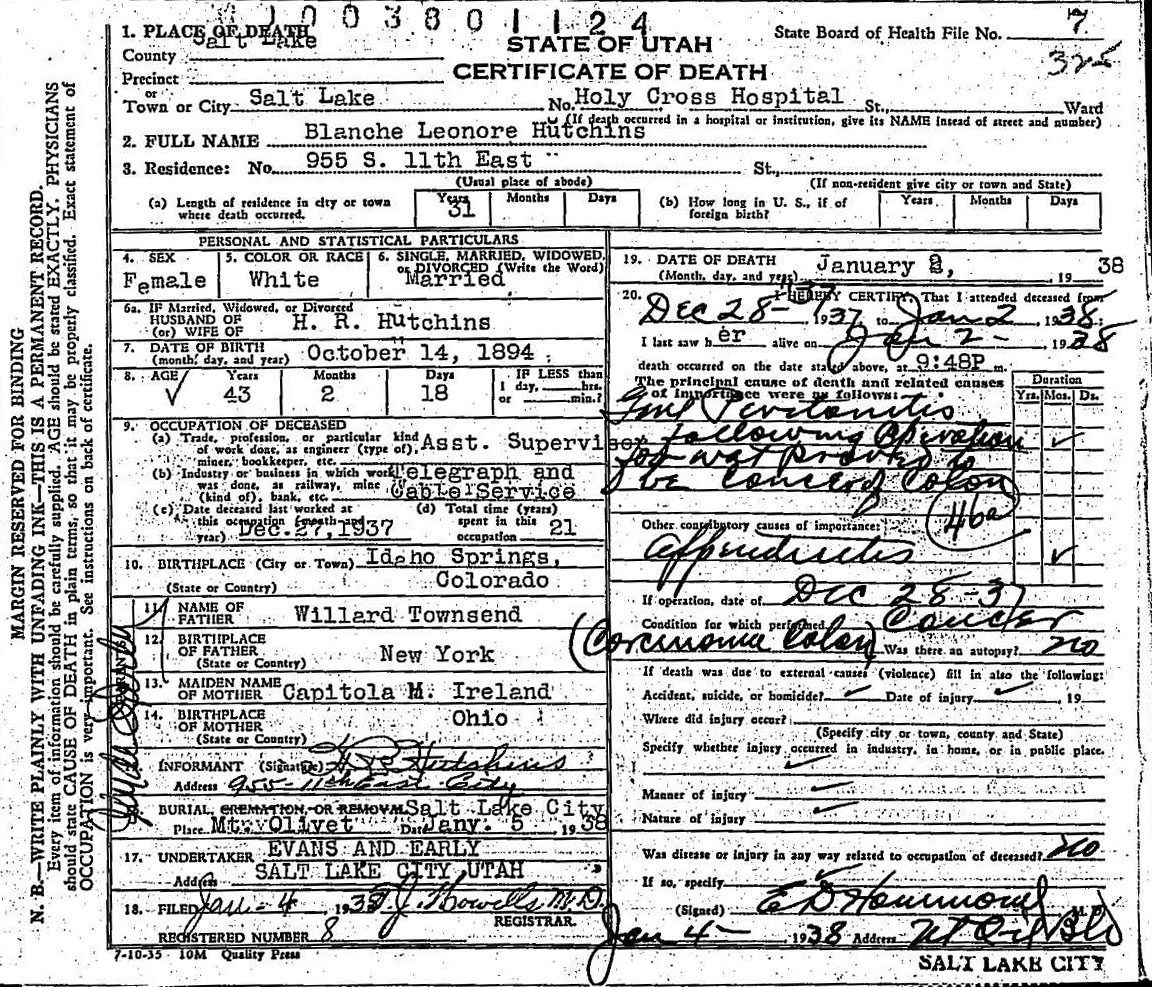 1003801124
1. PLACE OF DEATH
Salt Lake
County
STATE OF UTAH
State Board of Health File No. 7
325
Precinct
CERTIFICATE OF DEATH
or
Town or City Salt Lake No. Holy Cross Hospital St., Ward
(If death occurred in a hospital or institution, give its NAME instead of street and number)
2. FULL NAME Blanche Leonore Hutchins
3. Residence: No. 955 S. 11th East St.,
(Usual place of abode) (If non-resident give city or town and State)
(a) Length of residence in city or town where death occurred. Years 31 Months Days
(b) How long in U. S., if of foreign birth? Years Months Days
PERSONAL AND STATISTICAL PARTICULARS
4. SEX Female
5. COLOR OR RACE White
6. SINGLE, MARRIED, WIDOWED, or DIVORCED (Write the Word) Married
6a. IF Married, Widowed, or Divorced
HUSBAND OF
(or) WIFE OF H. R. Hutchins
7. DATE OF BIRTH
(month, day, and year) October 14, 1894
8. AGE Years 43 Months 2 Days 18 IF LESS than 1 day, hrs. or min.?
9. OCCUPATION OF DECEASED
(a) Trade, profession, or particular kind of work done, as engineer (type of), miner, bookkeeper, etc. Asst. Supervisor
(b) Industry or business in which work was done, as railway, mine (kind of), bank, etc. Telegraph and Cable Service
(c) Date deceased last worked at this occupation (month and year) Dec. 27, 1937
(d) Total time (years) spent in this occupation 21
10. BIRTHPLACE (City or Town) Idaho Springs,
(State or Country) Colorado
11. NAME OF FATHER Willard Townsend
12. BIRTHPLACE OF FATHER (State or Country) New York
13. MAIDEN NAME OF MOTHER Capitola M. Ireland
14. BIRTHPLACE OF MOTHER (State or Country) Ohio
INFORMANT (Signature) H R Hutchins
Address 955-11th East City
BURIAL, CREMATION, OR REMOVAL Salt Lake City
Place Mt. Olivet Date Jany. 5 1938
17. UNDERTAKER EVANS AND EARLY
Address SALT LAKE CITY, UTAH
18. FILED Jan - 4 1938 T. J. Howells M.D.
REGISTRAR.
REGISTERED NUMBER 8
7-10-35 10M Quality Press
19. DATE OF DEATH
(Month, day, and year) January 2, 1938
20. I HEREBY CERTIFY, That I attended deceased from
Dec 28- 1937 to Jan 2 1938
I last saw h er alive on Jan 2- 1938
death occurred on the date stated above, at 9:48P m.
The principal cause of death and related causes of importance were as follows:
Duration
Yrs. Mos. Ds.
Peritonitis
following operation
for wat proved to
be Cancer of Colon
46a
Other contributory causes of importance:
Appendicitis
If operation, date of Dec 28-37
Condition for which performed Cancer
(Carcinoma Colon) Was there an autopsy? no
If death was due to external causes (violence) fill in also the following:
Accident, suicide, or homicide? Date of injury 19
Where did injury occur?
(Specify city or town, county and State)
Specify whether injury occurred in industry, in home, or in public place.
Manner of injury
Nature of injury
Was disease or injury in any way related to occupation of deceased? no
If so, specify
(Signed) E D Hammond M.D.
Jan 4- 1938 Address Ut Oil Bld
SALT LAKE CITY
MARGIN RESERVED FOR BINDING
N. B.—WRITE PLAINLY WITH UNFADING INK—THIS IS A PERMANENT RECORD.
Every item of information should be carefully supplied. AGE should be stated EXACTLY. PHYSICIANS
should state CAUSE OF DEATH in plain terms, so that it may be properly classified. Exact statement of
OCCUPATION is very important. See instructions on back of certificate.